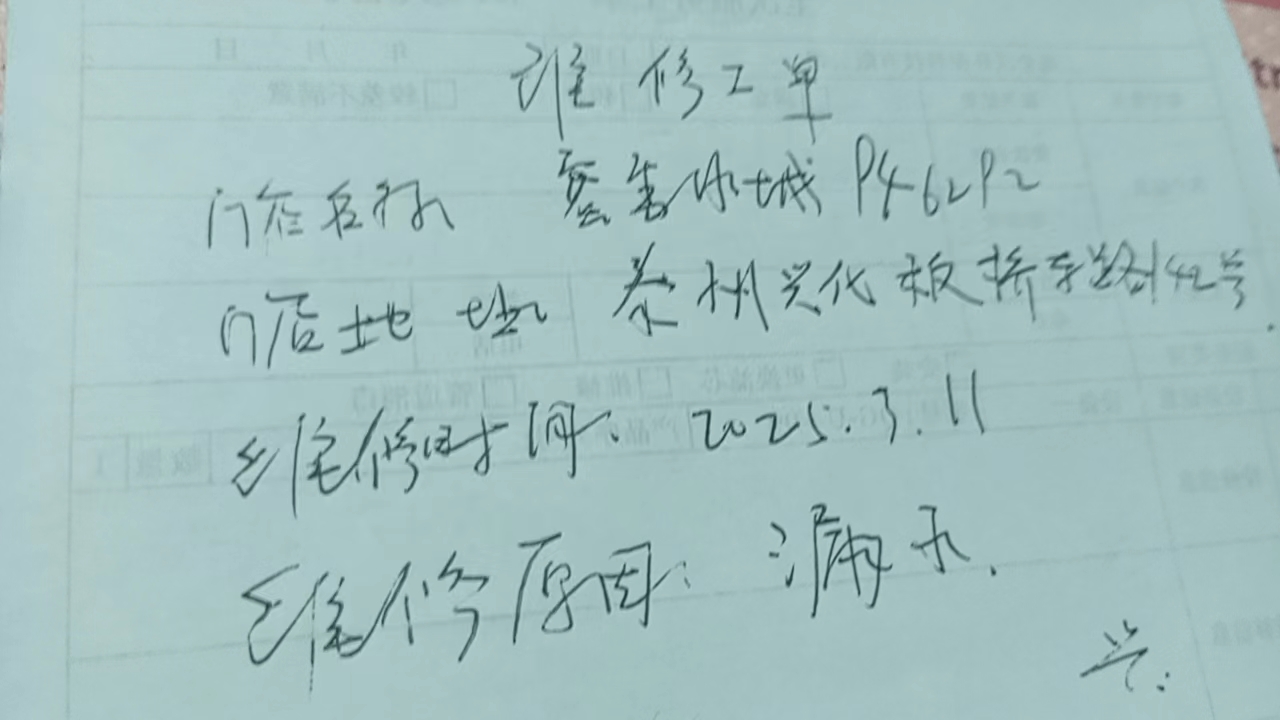 维修工单
门店名称 蜜雪冰城P462P2
门店地址 泰州兴化板桥东路142号
维修时间: 2025.3.11
维修原因: 漏水.